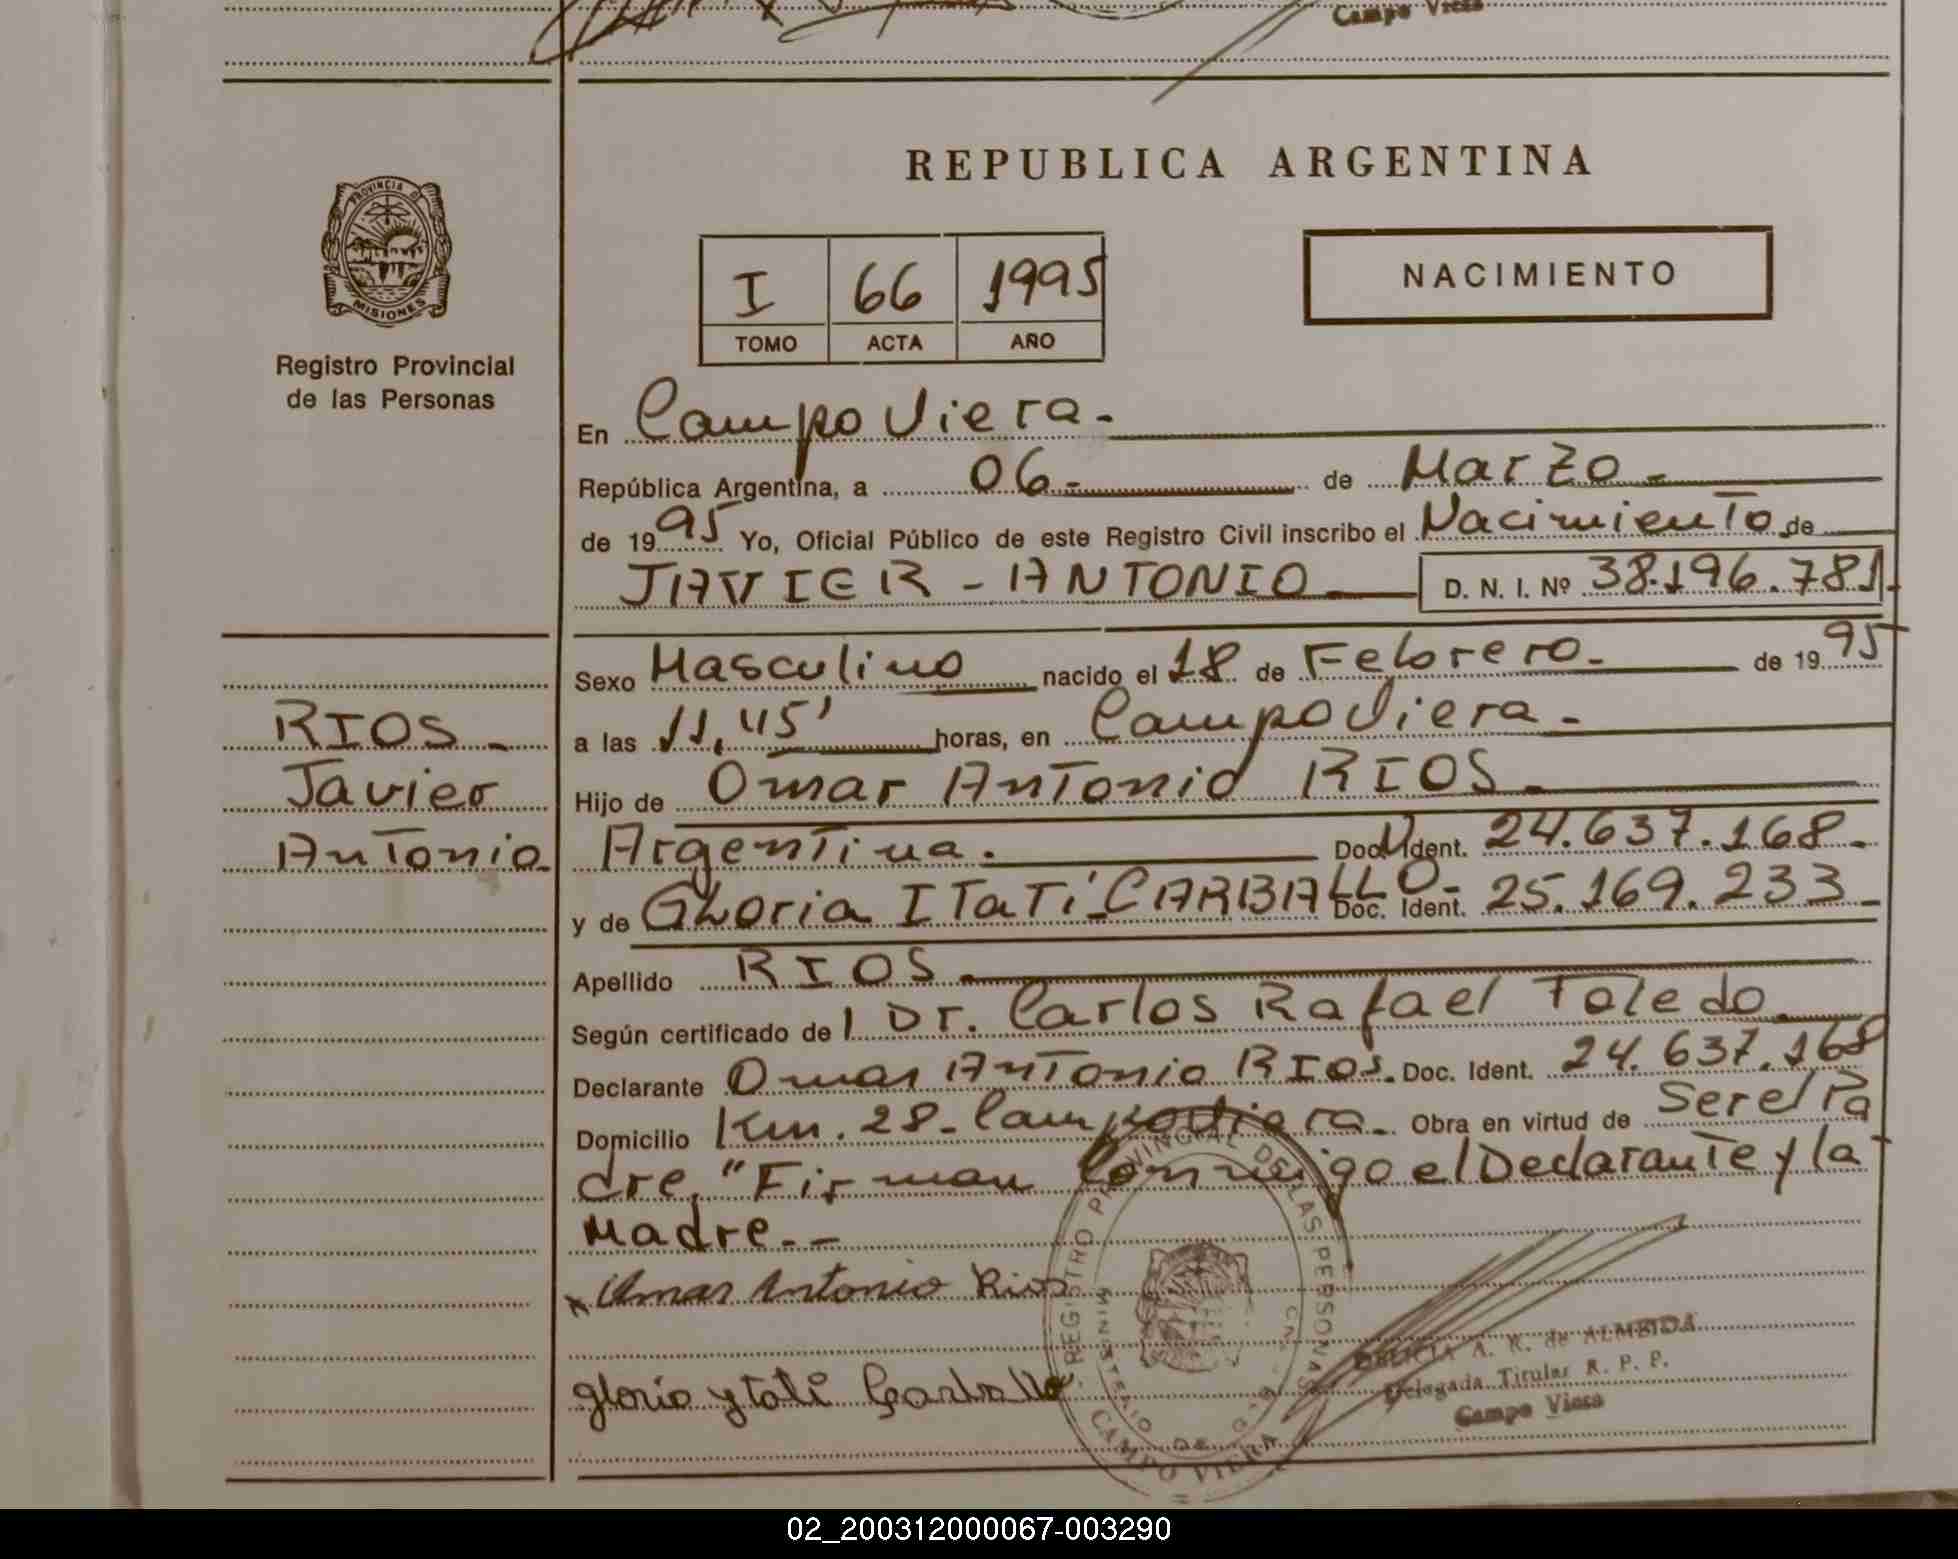 Campo Viera
REPUBLICA ARGENTINA
PROVINCIA D
MISIONES
Registro Provincial
de las Personas
I 66 1995
TOMO ACTA AÑO
NACIMIENTO
En Campo Viera.-
República Argentina, a 06.- de Marzo.-
de 1995 Yo, Oficial Público de este Registro Civil inscribo el Nacimiento de
JAVIER - ANTONIO D. N. I. Nº 38.196.781.
Sexo Masculino nacido el 18 de Febrero.- de 1995
a las 11,45' horas, en Campo Viera.-
Hijo de Omar Antonio RIOS.-
Argentina. Doc. Ident. 24.637.168.-
y de GLoria ITaTí CARBALLO.- Doc. Ident. 25.169.233.-
Apellido RIOS.-
Según certificado de l Dr. Carlos Rafael Toledo.
Declarante Omar Antonio RIOS. Doc. Ident. 24.637.168
Domicilio Km. 28- Campo Viera.- Obra en virtud de Ser el Pa
dre, "Firman Conmigo el Declarante y la
Madre.--
RIOS.-
Javier
Antonio.
x Omar Antonio Rios
gloria ytati Carballo
REGISTRO PROVINCIAL DE LAS PERSONAS
MINISTERIO DE G
CAMPO VIERA
DELICIA A. R. de ALMEIDA
Delegada Titular R. P. P.
Campo Viera
02_200312000067-003290